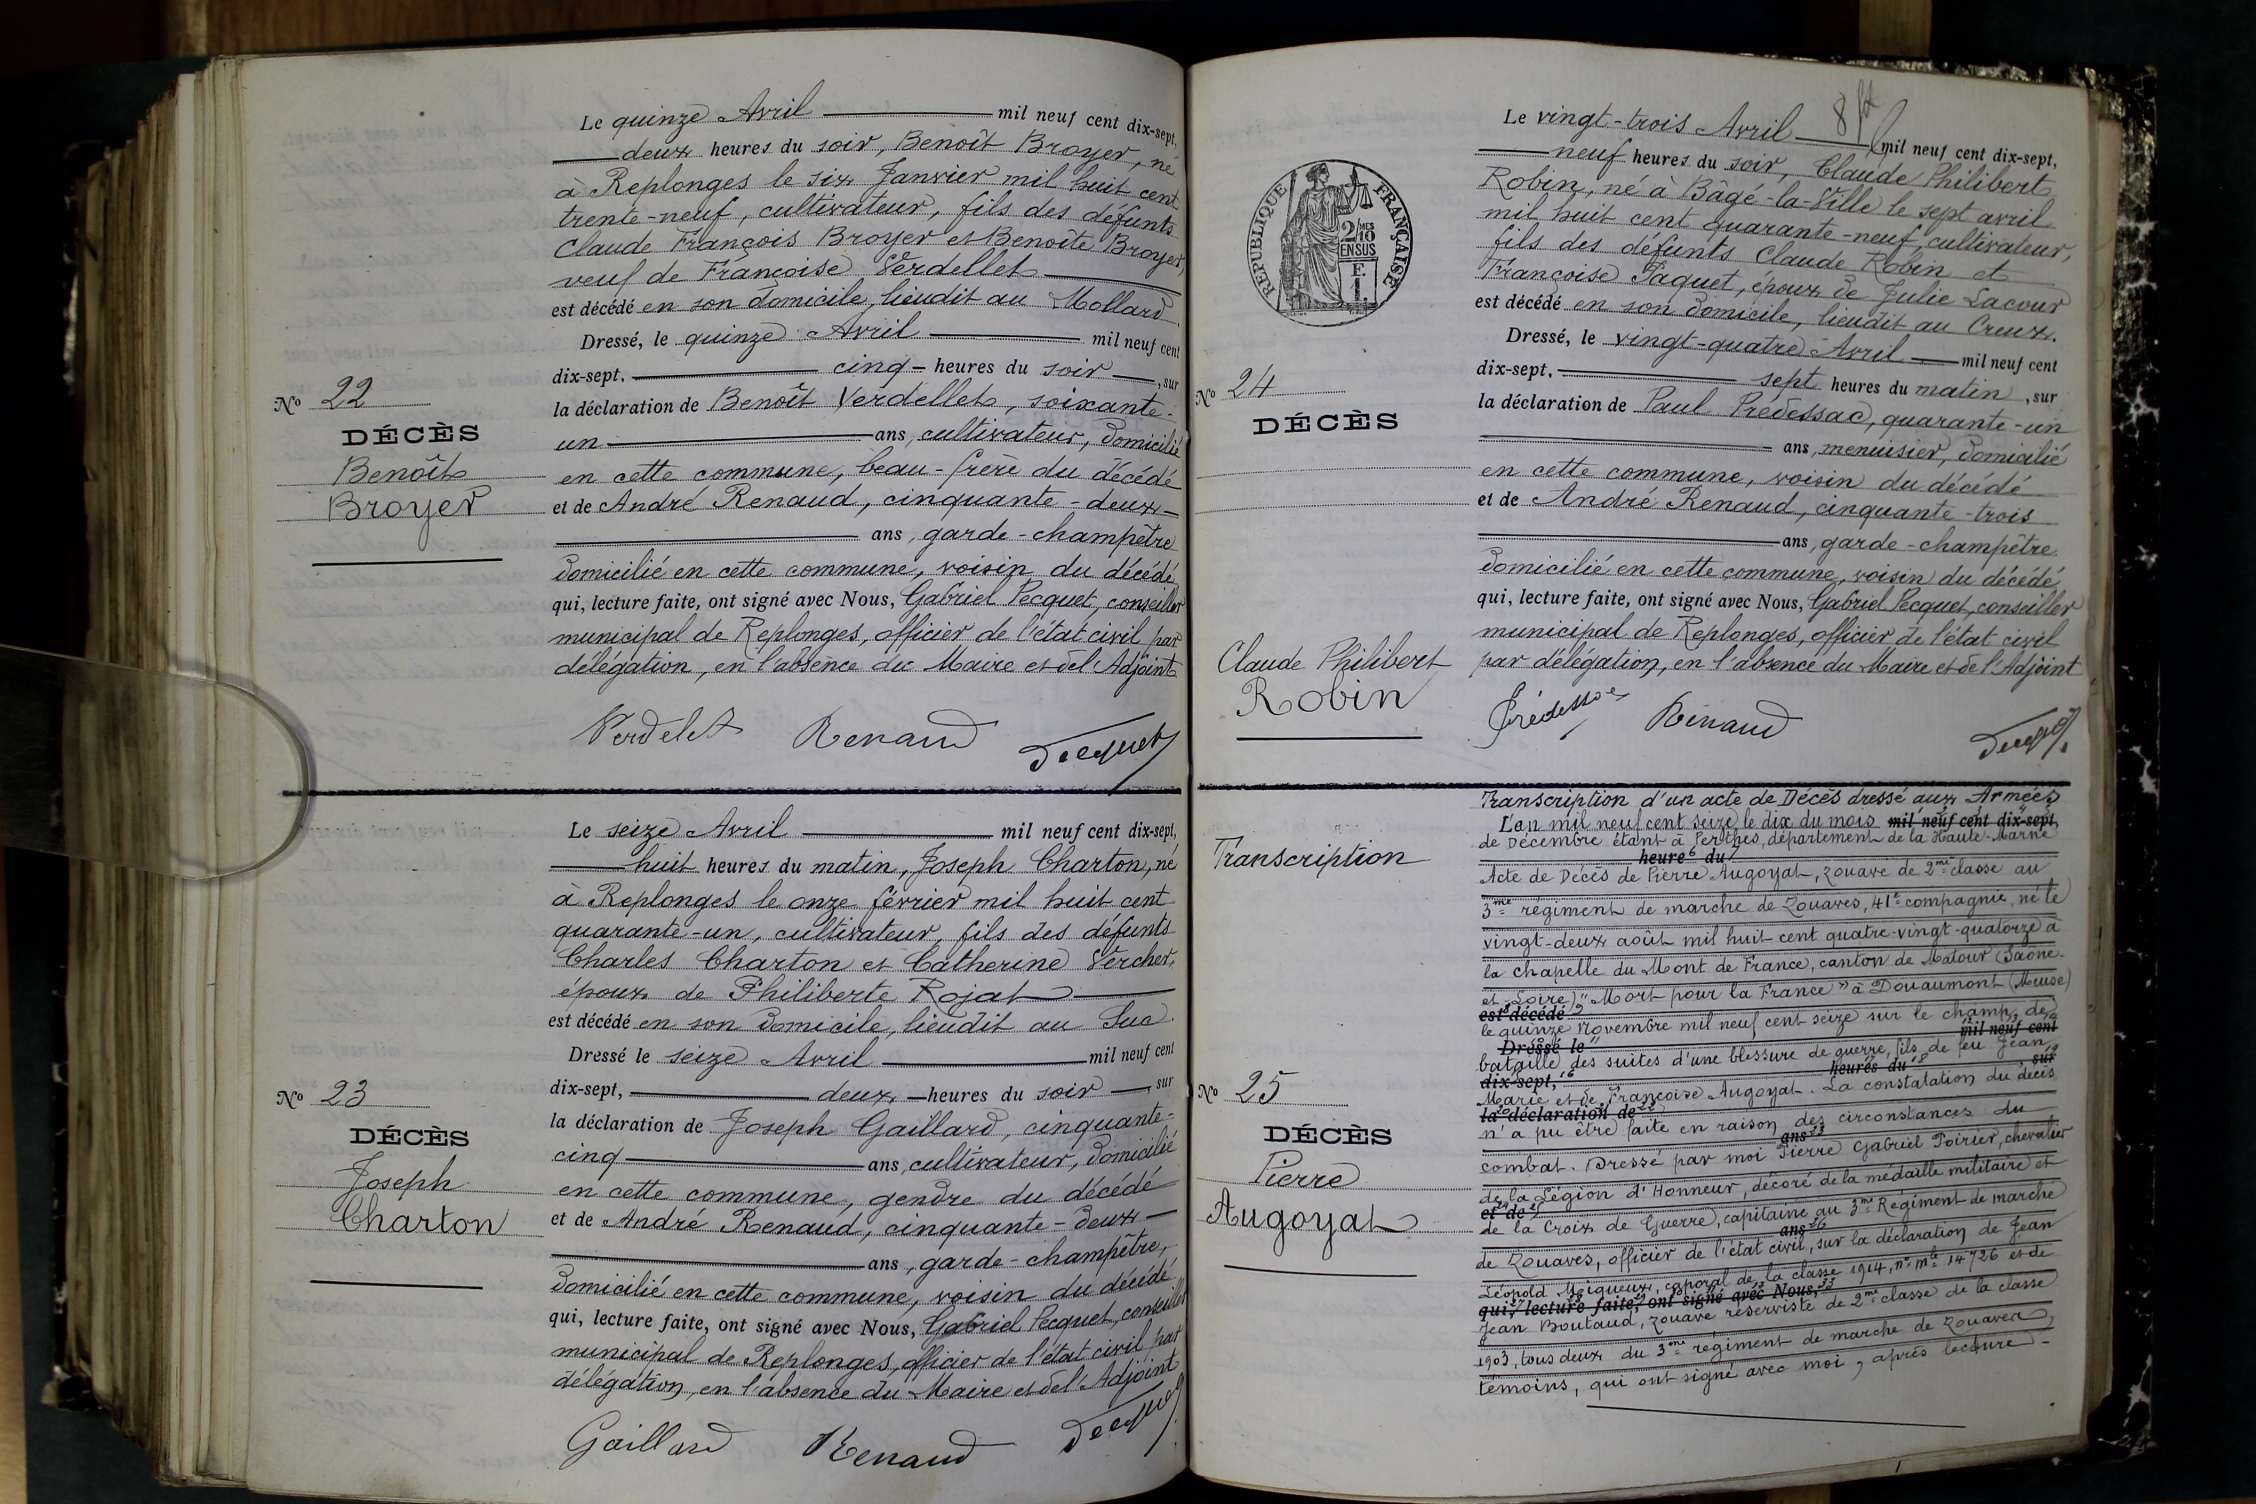 Le quinze Avril mil neuf cent dix-sept,
deux heures du soir, Benoît Broyer, né
à Replonges le six Janvier mil huit cent
trente-neuf, cultivateur, fils des défunts
Claude François Broyer et Benoîte Broyer,
veuf de Françoise Verdellet
est décédé en son domicile, lieudit au Mollard.
Dressé, le quinze Avril mil neuf cent
dix-sept, cinq heures du soir, sur
la déclaration de Benoît Verdellet, soixante-
un ans, cultivateur, domicilié
en cette commune, beau-frère du décédé
et de André Renaud, cinquante-deux
ans, garde-champêtre
domicilié en cette commune, voisin du décédé
qui, lecture faite, ont signé avec Nous, Gabriel Pecquet, conseiller
municipal de Replonges, officier de l'état civil par
délégation, en l'absence du Maire et de l'Adjoint
No 22
DÉCÈS
Benoît
Broyer
Verdelet Renaud Pecquet
Le seize Avril mil neuf cent dix-sept,
huit heures du matin, Joseph Charton, né
à Replonges le onze février mil huit cent
quarante-un, cultivateur, fils des défunts
Charles Charton et Catherine Vercher,
époux de Philiberte Rojat
est décédé en son domicile, lieudit au Suc.
Dressé le seize Avril mil neuf cent
dix-sept, deux heures du soir, sur
la déclaration de Joseph Gaillard, cinquante-
cinq ans, cultivateur, domicilié
en cette commune, gendre du décédé
et de André Renaud, cinquante-deux
ans, garde-champêtre,
domicilié en cette commune, voisin du décédé
qui, lecture faite, ont signé avec Nous, Gabriel Pecquet, conseiller
municipal de Replonges, officier de l'état civil par
délégation, en l'absence du Maire et de l'Adjoint
No 23
DÉCÈS
Joseph
Charton
Gaillard Renaud Pecquet
RÉPUBLIQUE FRANÇAISE
2/10 MES
EN SUS
F.
1.
Le vingt-trois Avril mil neuf cent dix-sept,
neuf heures du soir, Claude Philibert
Robin, né à Bâgé-la-Ville le sept avril
mil huit cent quarante-neuf, cultivateur,
fils des défunts Claude Robin et
Françoise Paquet, époux de Julie Lacour
est décédé en son domicile, lieudit au Creux.
Dressé, le vingt-quatre Avril mil neuf cent
dix-sept, sept heures du matin, sur
la déclaration de Paul Predessac, quarante-un
ans, menuisier, domicilié
en cette commune, voisin du décédé
et de André Renaud, cinquante-trois
ans, garde-champêtre
domicilié en cette commune, voisin du décédé
qui, lecture faite, ont signé avec Nous, Gabriel Pecquet, conseiller
municipal de Replonges, officier de l'état civil
par délégation, en l'absence du Maire et de l'Adjoint
No 24
DÉCÈS
Claude Philibert
Robin
Renaud Pecquet
Transcription
Transcription d'un acte de Décès dressé aux Armées
L'an mil neuf cent seize le dix du mois mil neuf cent dix-sept,
de Décembre étant à Perthes, département de la Haute-Marne
heures du
Acte de Décès de Pierre Augoyat, zouave de 2me classe au
3me régiment de marche de Zouaves, 41e compagnie, né le
vingt-deux août mil huit cent quatre-vingt-quatorze à
la chapelle du Mont de France, canton de Matour (Saône-
et-Loire) "Mort pour la France" à Douaumont (Meuse)
est décédé
le quinze Novembre mil neuf cent seize sur le champ de
Dressé le mil neuf cent
bataille des suites d'une blessure de guerre, fils de feu Jean
dix-sept, heures du , sur
Marie et de Françoise Augoyat. La constatation du décès
la déclaration de
n'a pu être faite en raison des circonstances du
ans
combat. Dressé par moi Pierre Gabriel Poirier, chevalier
de la Légion d'Honneur, décoré de la médaille militaire et
et de
de la Croix de Guerre, capitaine au 3me Régiment de marche
ans
de Zouaves, officier de l'état civil, sur la déclaration de Jean
Léopold Meiqueux, caporal de la classe 1914, no mle 14726 et de
qui, lecture faite, ont signé avec Nous,
Jean Boutaud, zouave réserviste de 2me classe de la classe
1903, tous deux du 3me régiment de marche de Zouaves,
témoins, qui ont signé avec moi, après lecture.
No 25
DÉCÈS
Pierre
Augoyat